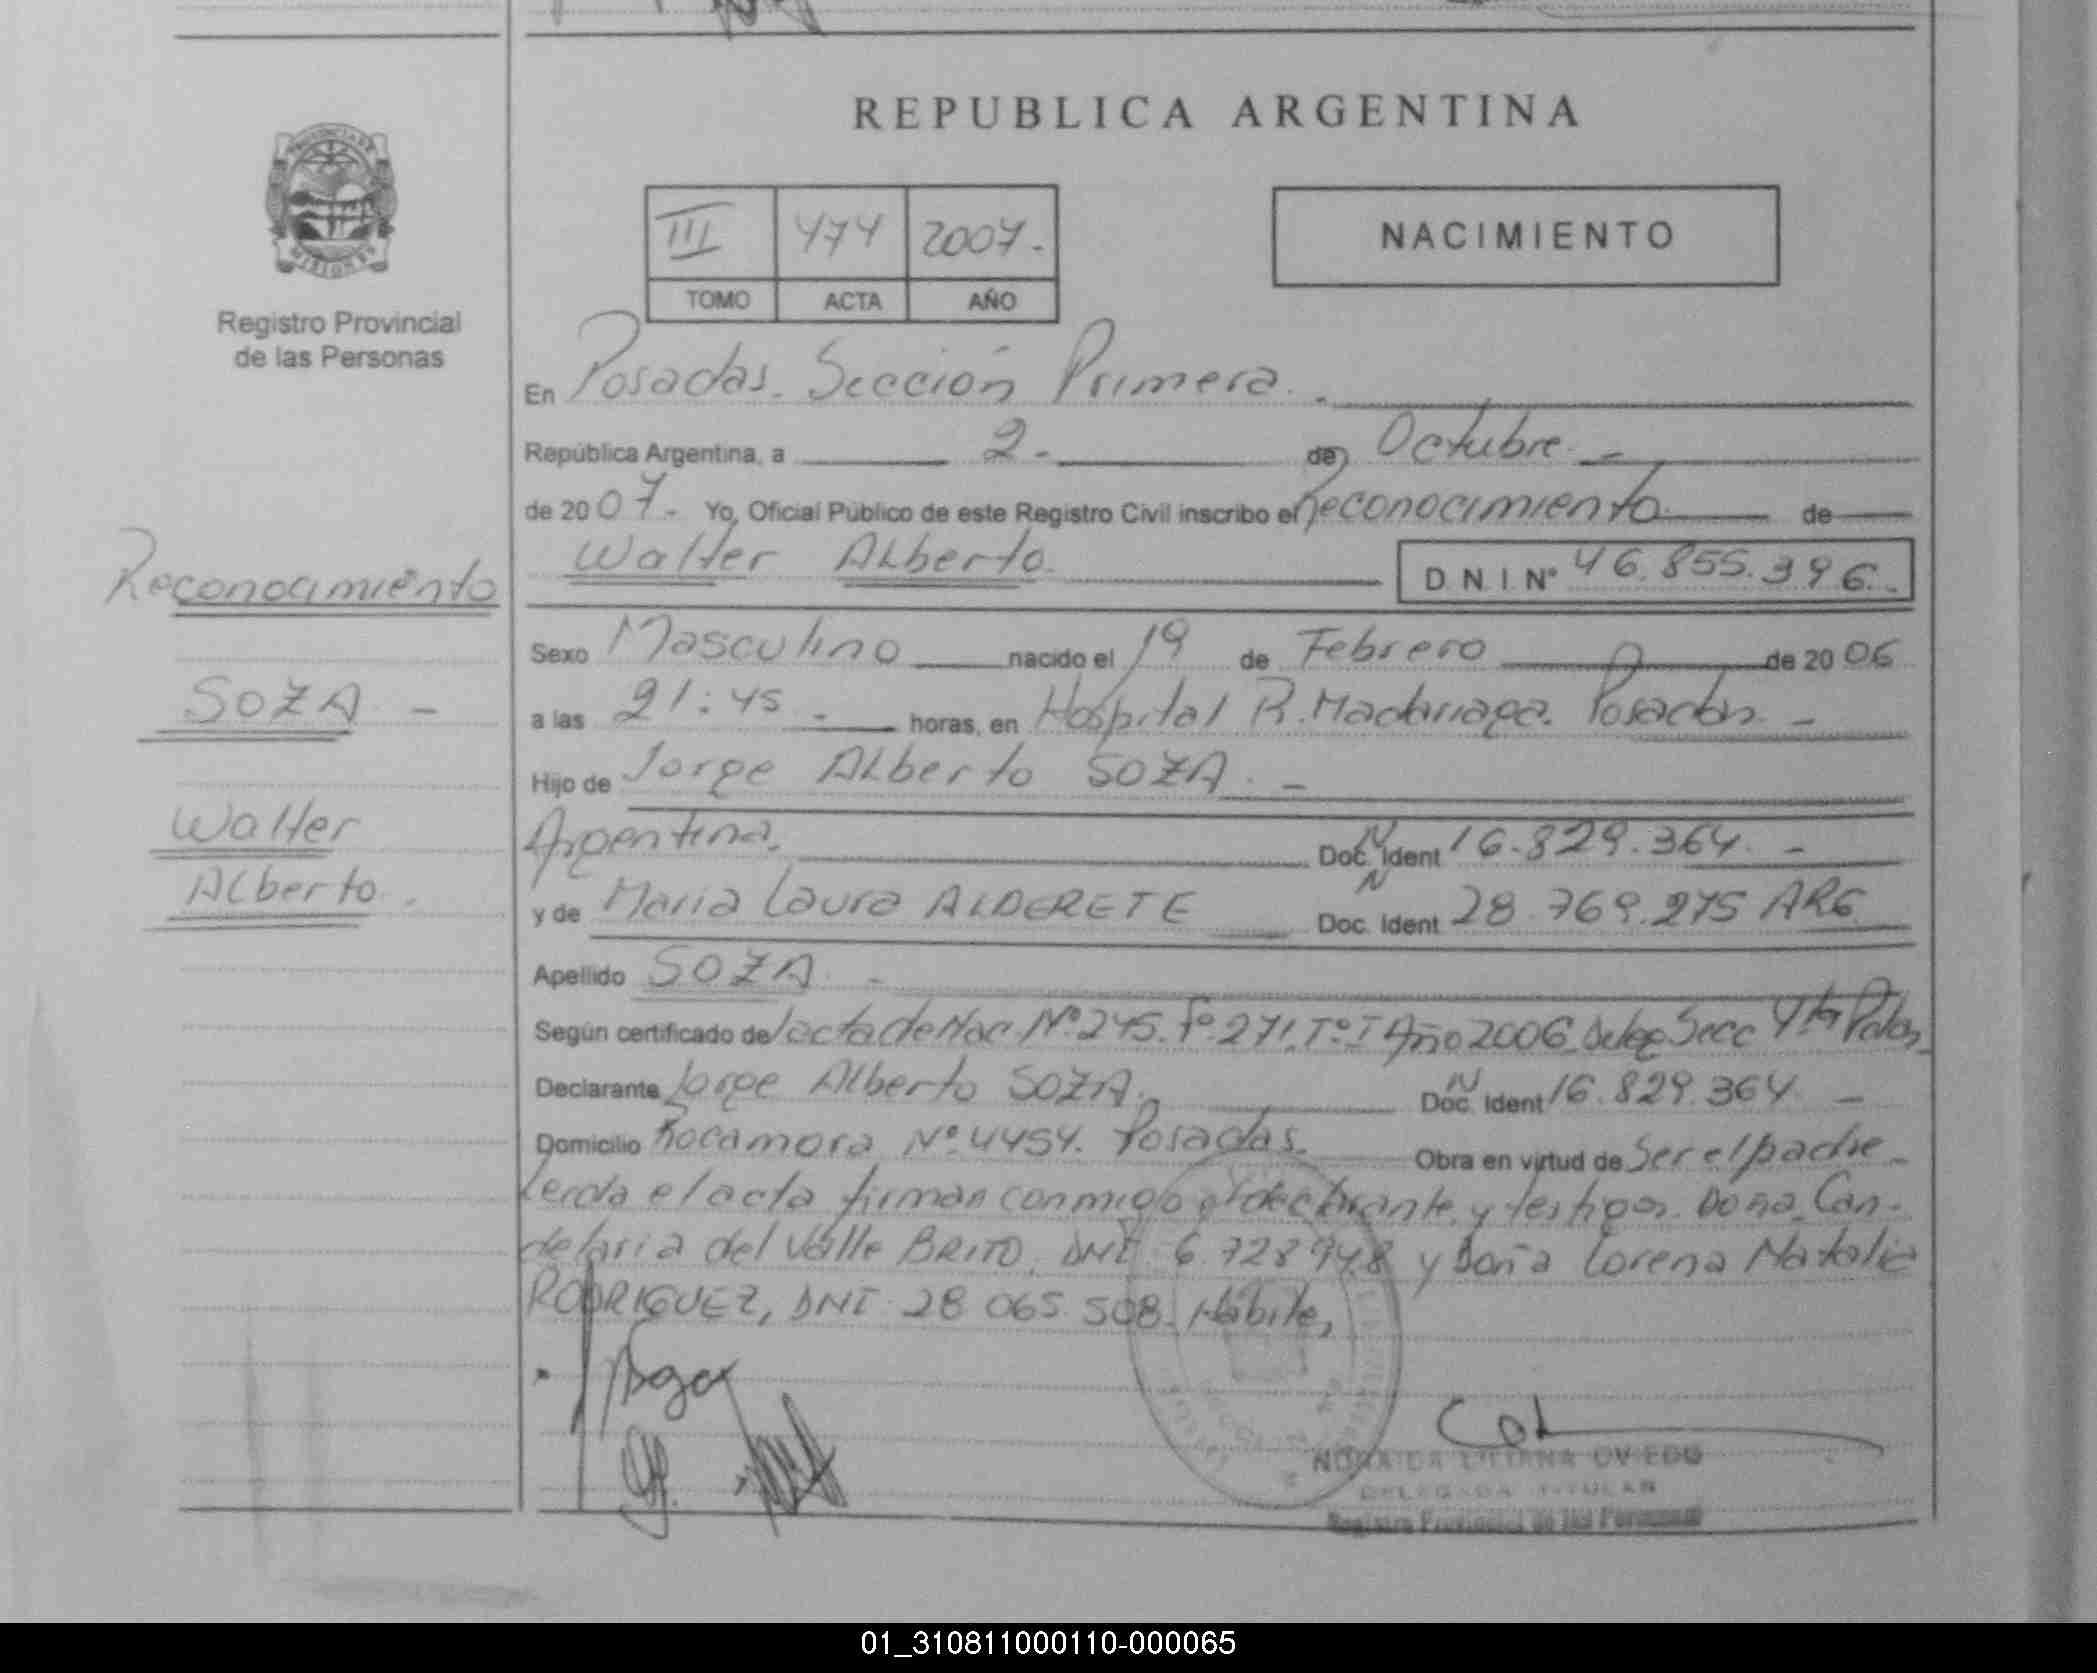 REPUBLICA ARGENTINA
PROVINCIA DE
MISIONES
Registro Provincial
de las Personas
III 474 2007.-
TOMO ACTA AÑO
NACIMIENTO
En Posadas. Sección Primera.-
República Argentina, a 2.- de Octubre.-
de 2007.- Yo, Oficial Público de este Registro Civil inscribo el Reconocimiento de
Walter ALberto. D.N.I. Nº 46.855.396.-
Reconocimiento
SOZA.-
Walter
ALberto.
Sexo Masculino nacido el 19 de Febrero de 2006
a las 21:45.- horas, en Hospital R. Madariaga. Posadas.-
Hijo de Jorge ALberto SOZA.-
Argentina. Doc. Ident N 16.829.364.-
y de Maria Laura ALDERETE Doc. Ident N 28.769.275 ARG
Apellido SOZA.-
Según certificado de/acta de Nac Nº 245. Fº 271. Tº I Año 2006. Deleg Secc 4ta
Declarante Jorge Alberto SOZA. Doc. Ident N 16.829.364.-
Domicilio Rocamora Nº 4454. Posadas. Obra en virtud de Ser el padre.
Leida el acta firman conmigo el declarante y testigos. Doña Can-
delaria del Valle BRITO, DNI 6.728.948 y Doña Lorena Natalia
RODRIGUEZ, DNI 28 065 508.
LILIANA OVIEDO
DELEGADA TITULAR
Registro Provincial de las Personas
01_310811000110-000065